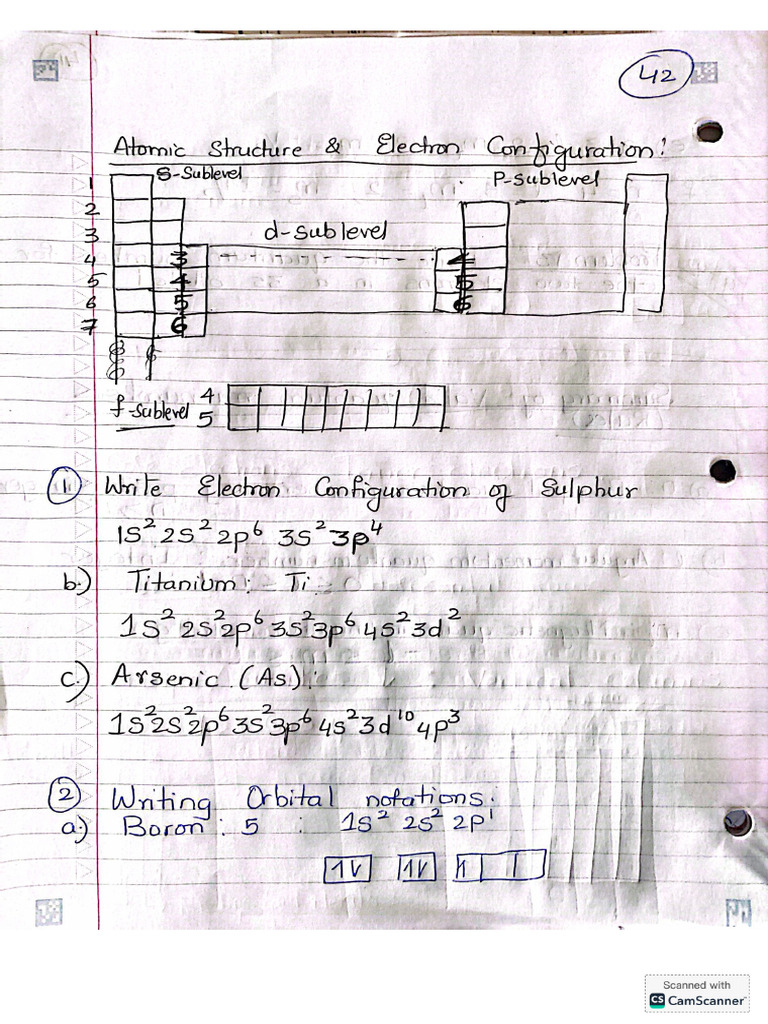 42
Atomic Structure & Electron Configuration:
1 S-Sublevel P-sublevel
2
3 d-sublevel
4 3 4
5 4 5
6 5 6
7 6
f-sublevel 4
5
① Write Electron Configuration of Sulphur
1S² 2S² 2p⁶ 3S² 3p⁴
b.) Titanium: - Ti:
1S² 2S² 2p⁶ 3S² 3p⁶ 4S² 3d²
c.) Arsenic (As):
1S² 2S² 2p⁶ 3S² 3p⁶ 4S² 3d¹⁰ 4p³
② Writing Orbital notations:
a.) Boron: 5 : 1S² 2S² 2P¹
Scanned with
CS CamScanner